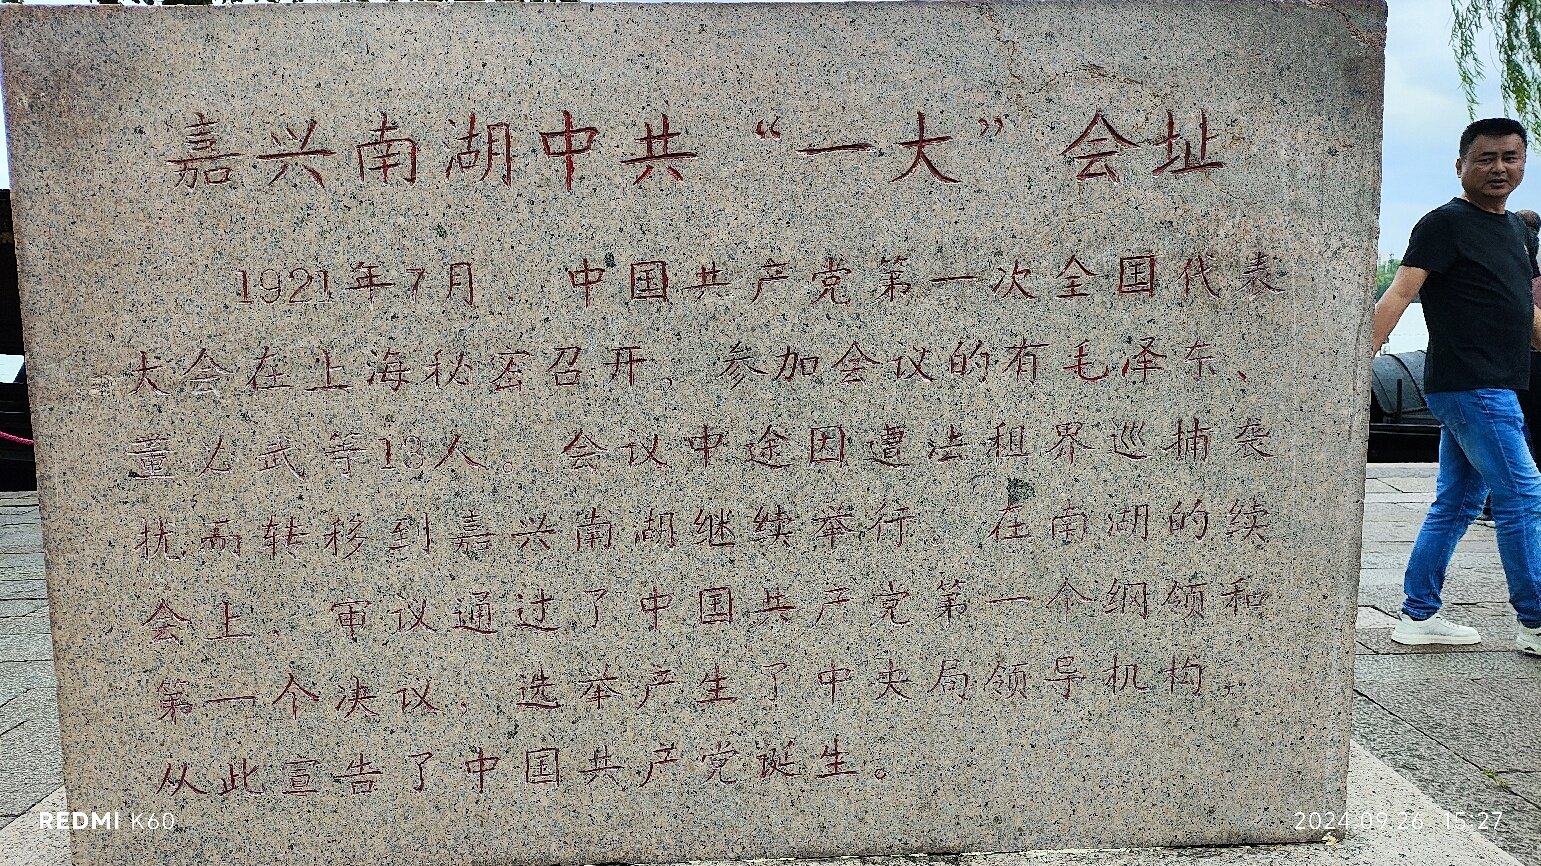 嘉兴南湖中共“一大”会址
1921年7月，中国共产党第一次全国代表
大会在上海秘密召开，参加会议的有毛泽东、
董必武等13人。会议中途因遭法租界巡捕袭
扰而转移到嘉兴南湖继续举行。在南湖的续
会上，审议通过了中国共产党第一个纲领和
第一个决议，选举产生了中央局领导机构，
从此宣告了中国共产党诞生。
REDMI K60
2024.09.26 15:27